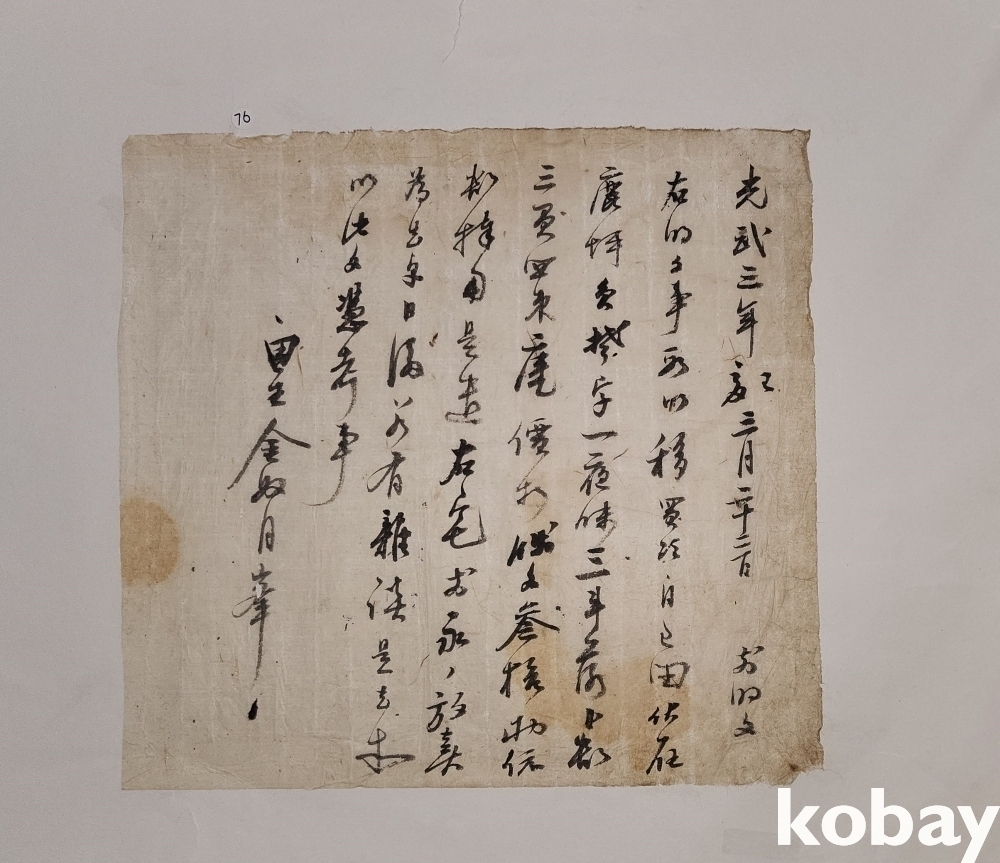 光武三年 三月二十二日 前明文
右明文事段以移買次自己田伏在
坪員 字一夜味三斗落卜數
三負四束 價折錢文參拾兩依
數捧用是遣右宅前永永放賣
為去乎日後若有雜談是去等
以此文憑考事
田主金奴月
76
kobay